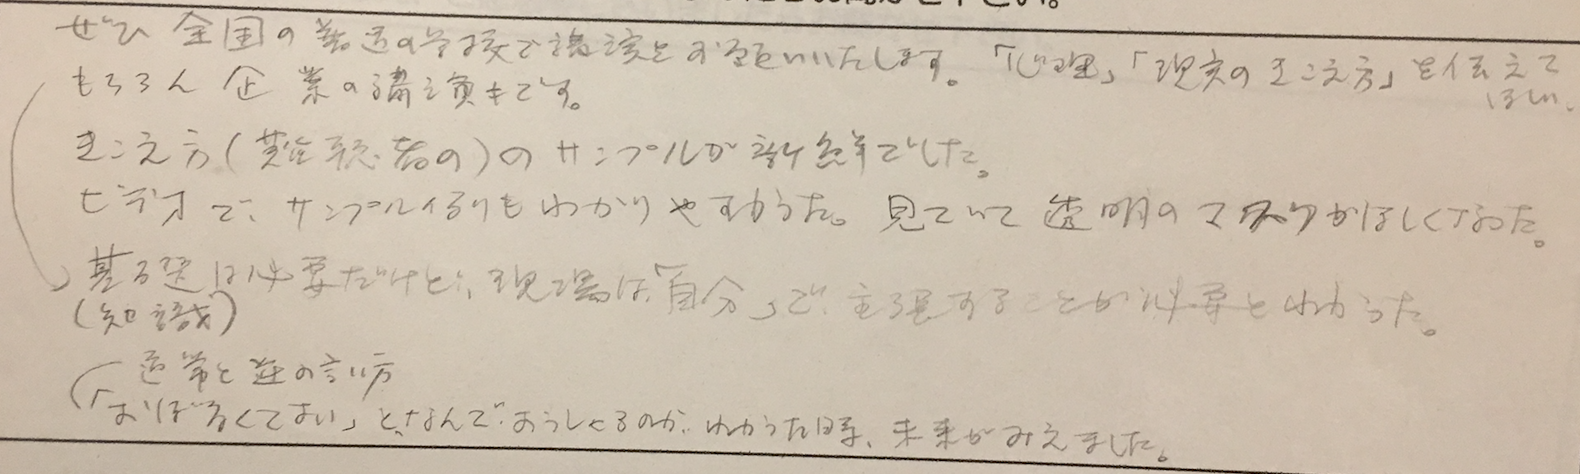 ぜひ 全国の 普通の学校で講演を お願いいたします。「心理」「現実のきこえ方」を伝えて
ほしい。
もちろん 企業の講演もです。
きこえ方(難聴者の)の サンプルが 新鮮でした。
ビデオで、サンプル もわかりやすかった。見ていて 透明の マスクがほしくなった。
基礎は必要だけど、現場は「自分」で 主張することが必要とわかった。
(知識)
通常と逆の言い方
と、なんで のか わかった時、未来がみえました。